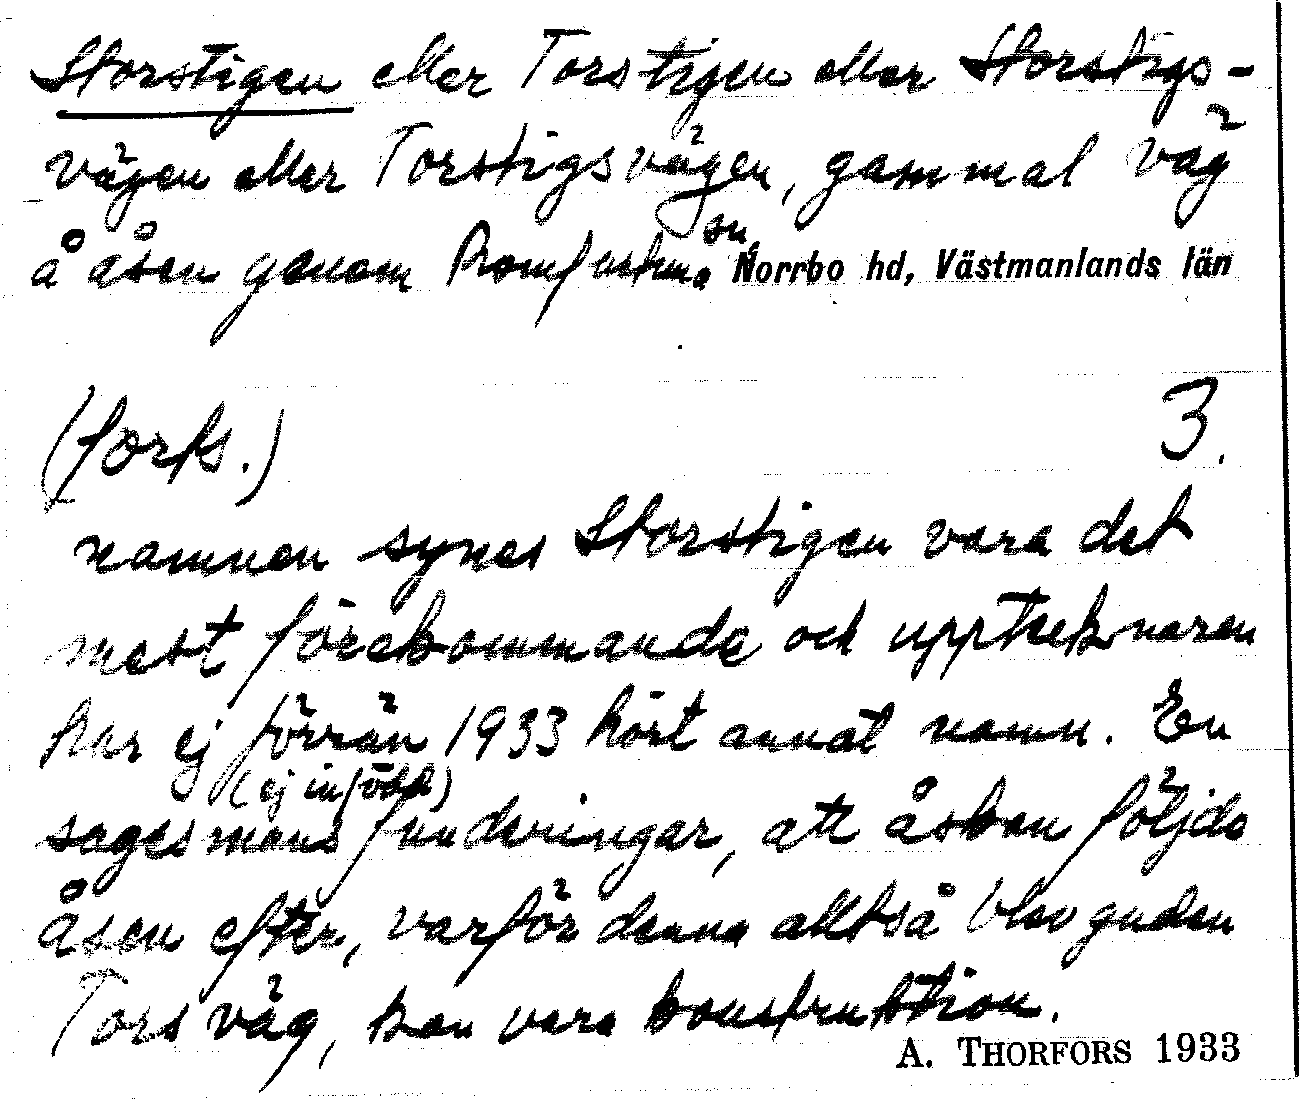 Storstigen eller Torstigen eller Storstigs-
vägen eller Torstigsvägen, gammal väg
å åsen genom Romfartuna sn, Norrbo hd, Västmanlands län
(forts.) 3.
namnen synes Storstigen vara det
mest förekommande och upptecknaren
har ej förrän 1933 hört annat namn. En
(ej infödd)
sagesmans funderingar, att åskan följde
åsen efter, varför denna alltså blev guden
Tors väg, kan vara konstruktion.
A. THORFORS 1933